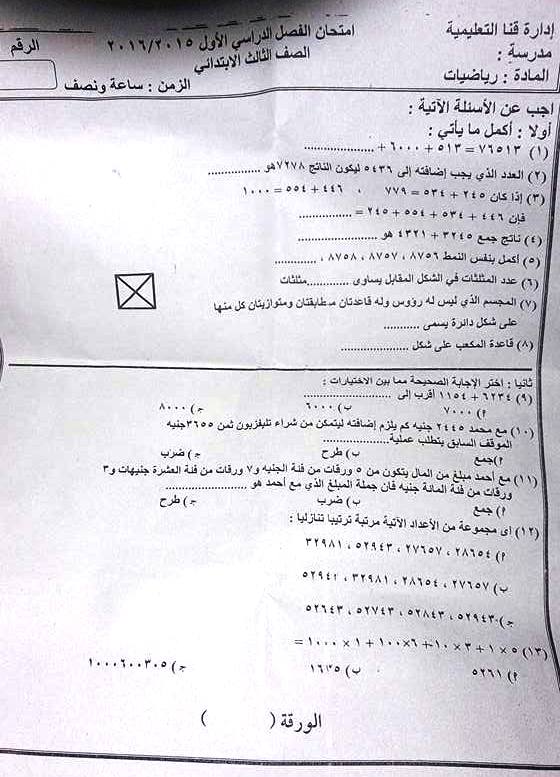 إدارة قنا التعليمية
مدرسة :
المادة : رياضيات
امتحان الفصل الدراسي الأول ٢٠١٦/٢٠١٥
الصف الثالث الابتدائي
الزمن : ساعة ونصف
الرقم
اجب عن الأسئلة الآتية :
أولا : أكمل ما يأتي :
(١) ٧٦٥١٣ = ٥١٣ + ٦٠٠٠ + ....................
(٢) العدد الذي يجب إضافته إلى ٥٤٣٦ ليكون الناتج ٧٢٧٨ هو ................
(٣) إذا كان ٢٤٥ + ٥٣٤ = ٧٧٩ ، ٤٤٦ + ٥٥٤ = ١٠٠٠
فإن ٤٤٦ + ٥٣٤ + ٥٥٤ + ٢٤٥ = ................
(٤) ناتج جمع ٣٢٤٥ + ٤٣٢١ هو ......................
(٥) أكمل بنفس النمط ٨٧٥٦ ، ٨٧٥٧ ، ٨٧٥٨ ، ............
(٦) عدد المثلثات في الشكل المقابل يساوى ............مثلثات
(٧) المجسم الذي ليس له رؤوس وله قاعدتان متطابقتان ومتوازيتان كل منها
على شكل دائرة يسمى ...........
(٨) قاعدة المكعب على شكل ...................
ثانيا : اختر الإجابة الصحيحة مما بين الاختيارات :
(٩) ٦٢٣٤ + ١١٥٤ أقرب إلى ........................
أ) ٧٠٠٠ ب) ٦٠٠٠ جـ) ٨٠٠٠
(١٠) مع محمد ٢٤٤٥ جنيه كم يلزم إضافته ليتمكن من شراء تليفزيون ثمن ٣٦٥٥جنيه
الموقف السابق يتطلب عملية....................
أ)جمع ب) طرح جـ) ضرب
(١١) مع أحمد مبلغ من المال يتكون من ٥ ورقات من فئة الجنيه و٧ ورقات من فئة العشرة جنيهات و٣
ورقات من فئة المائة جنيه فان جملة المبلغ الذي مع أحمد هو ........................
أ) جمع ب) ضرب جـ) طرح
(١٢) اى مجموعة من الأعداد الآتية مرتبة ترتيبا تنازليا :
أ) ٢٨٦٥٤ ، ٢٧٦٥٧ ، ٥٢٩٤٣ ، ٣٢٩٨١
ب) ٢٧٦٥٧ ، ٢٨٦٥٤ ، ٣٢٩٨١ ،
جـ) ٥٢٩٤٣ ، ٥٢٨٤٣ ، ٥٢٧٤٣ ، ٥٢٦٤٣
(١٣) ٥ × ١ + ٣ × ١٠ + ٦×١٠٠ + ١ × ١٠٠٠ =
أ) ٥٢٦١ ب) ١٦٣٥ جـ) ١٠٠٠٦٠٠٣٠٥
الورقة ( )